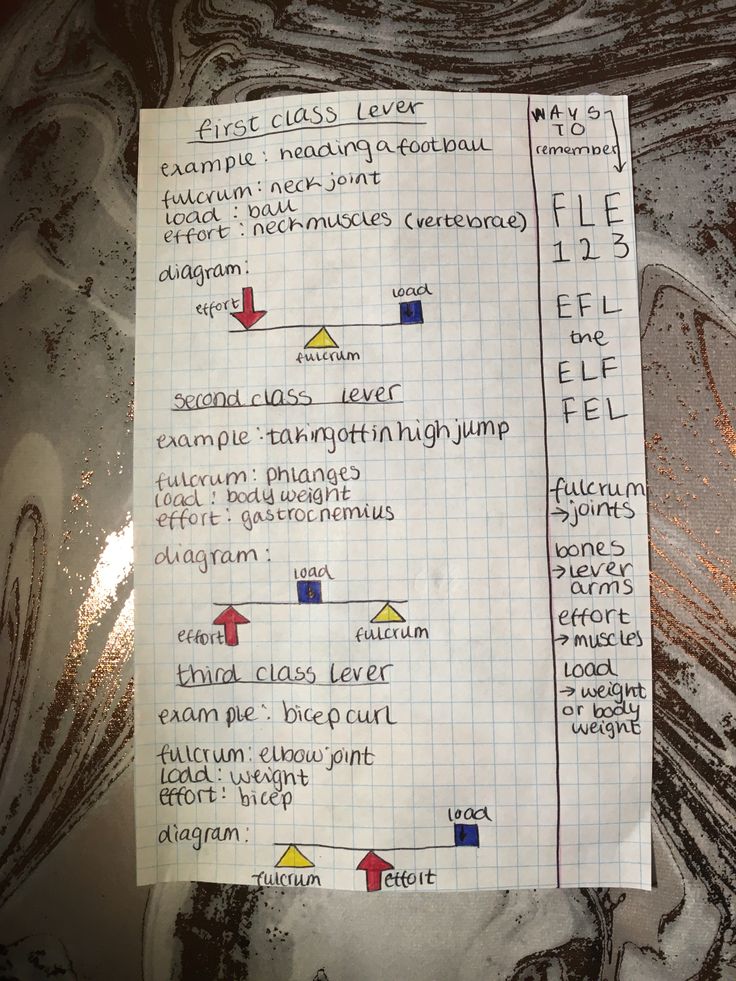 first class lever
example: heading a football
fulcrum: neck joint
load: ball
effort: neck muscles (vertebrae)
diagram:
effort
load
fulcrum
second class lever
example: taking off in high jump
fulcrum: phlanges
load: body weight
effort: gastrocnemius
diagram:
load
effort
fulcrum
third class lever
example: bicep curl
fulcrum: elbow joint
load: weight
effort: bicep
diagram:
load
fulcrum
effort
WAYS
TO
remember
FLE
123
EFL
the
ELF
FEL
fulcrum
→joints
bones
→lever
arms
effort
→muscles
load
→weight
or body
weight